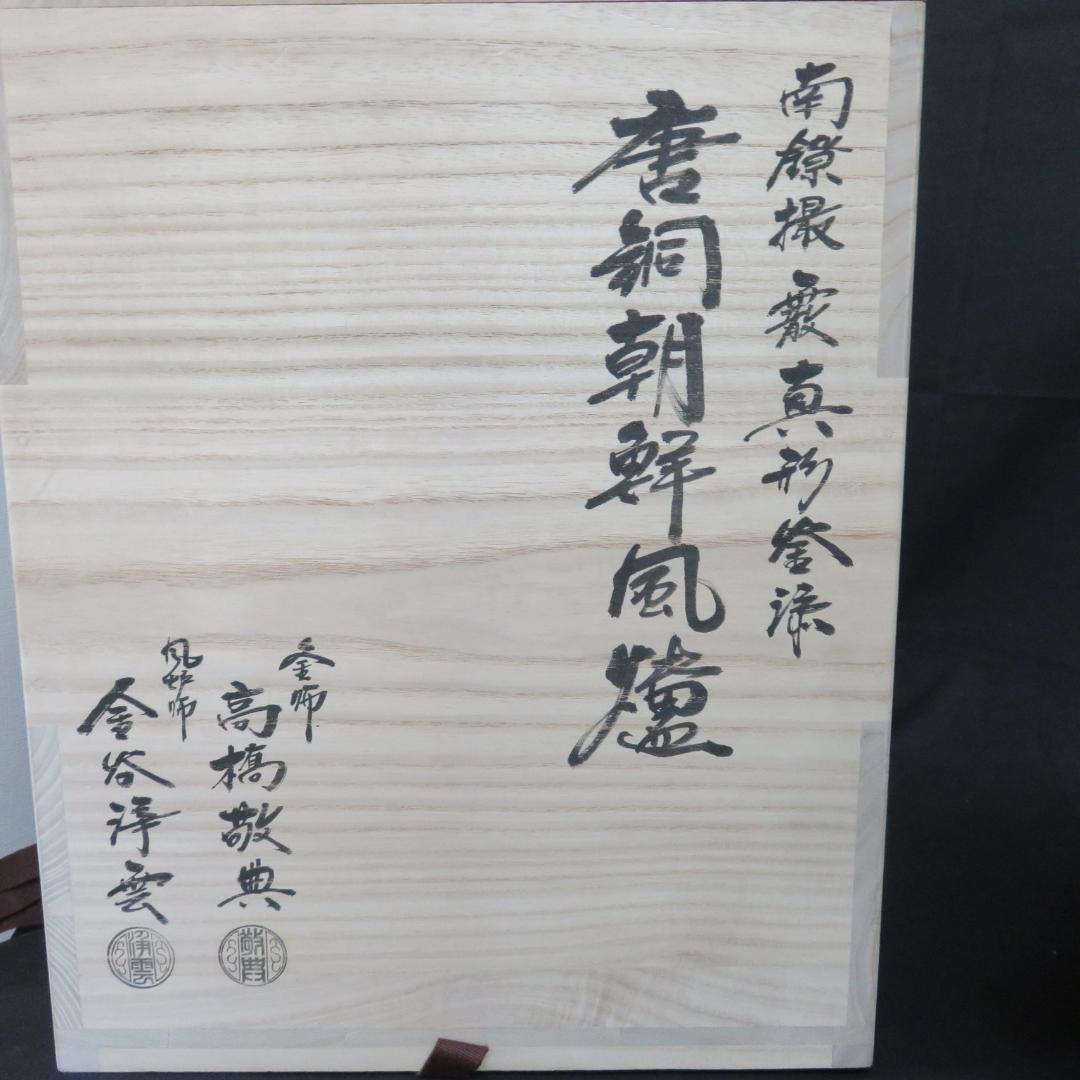 南鐐撮 霰真形釜添
唐銅朝鮮風爐
釜師
高橋敬典
敬典
風炉师
金谷浄雲
浄雲